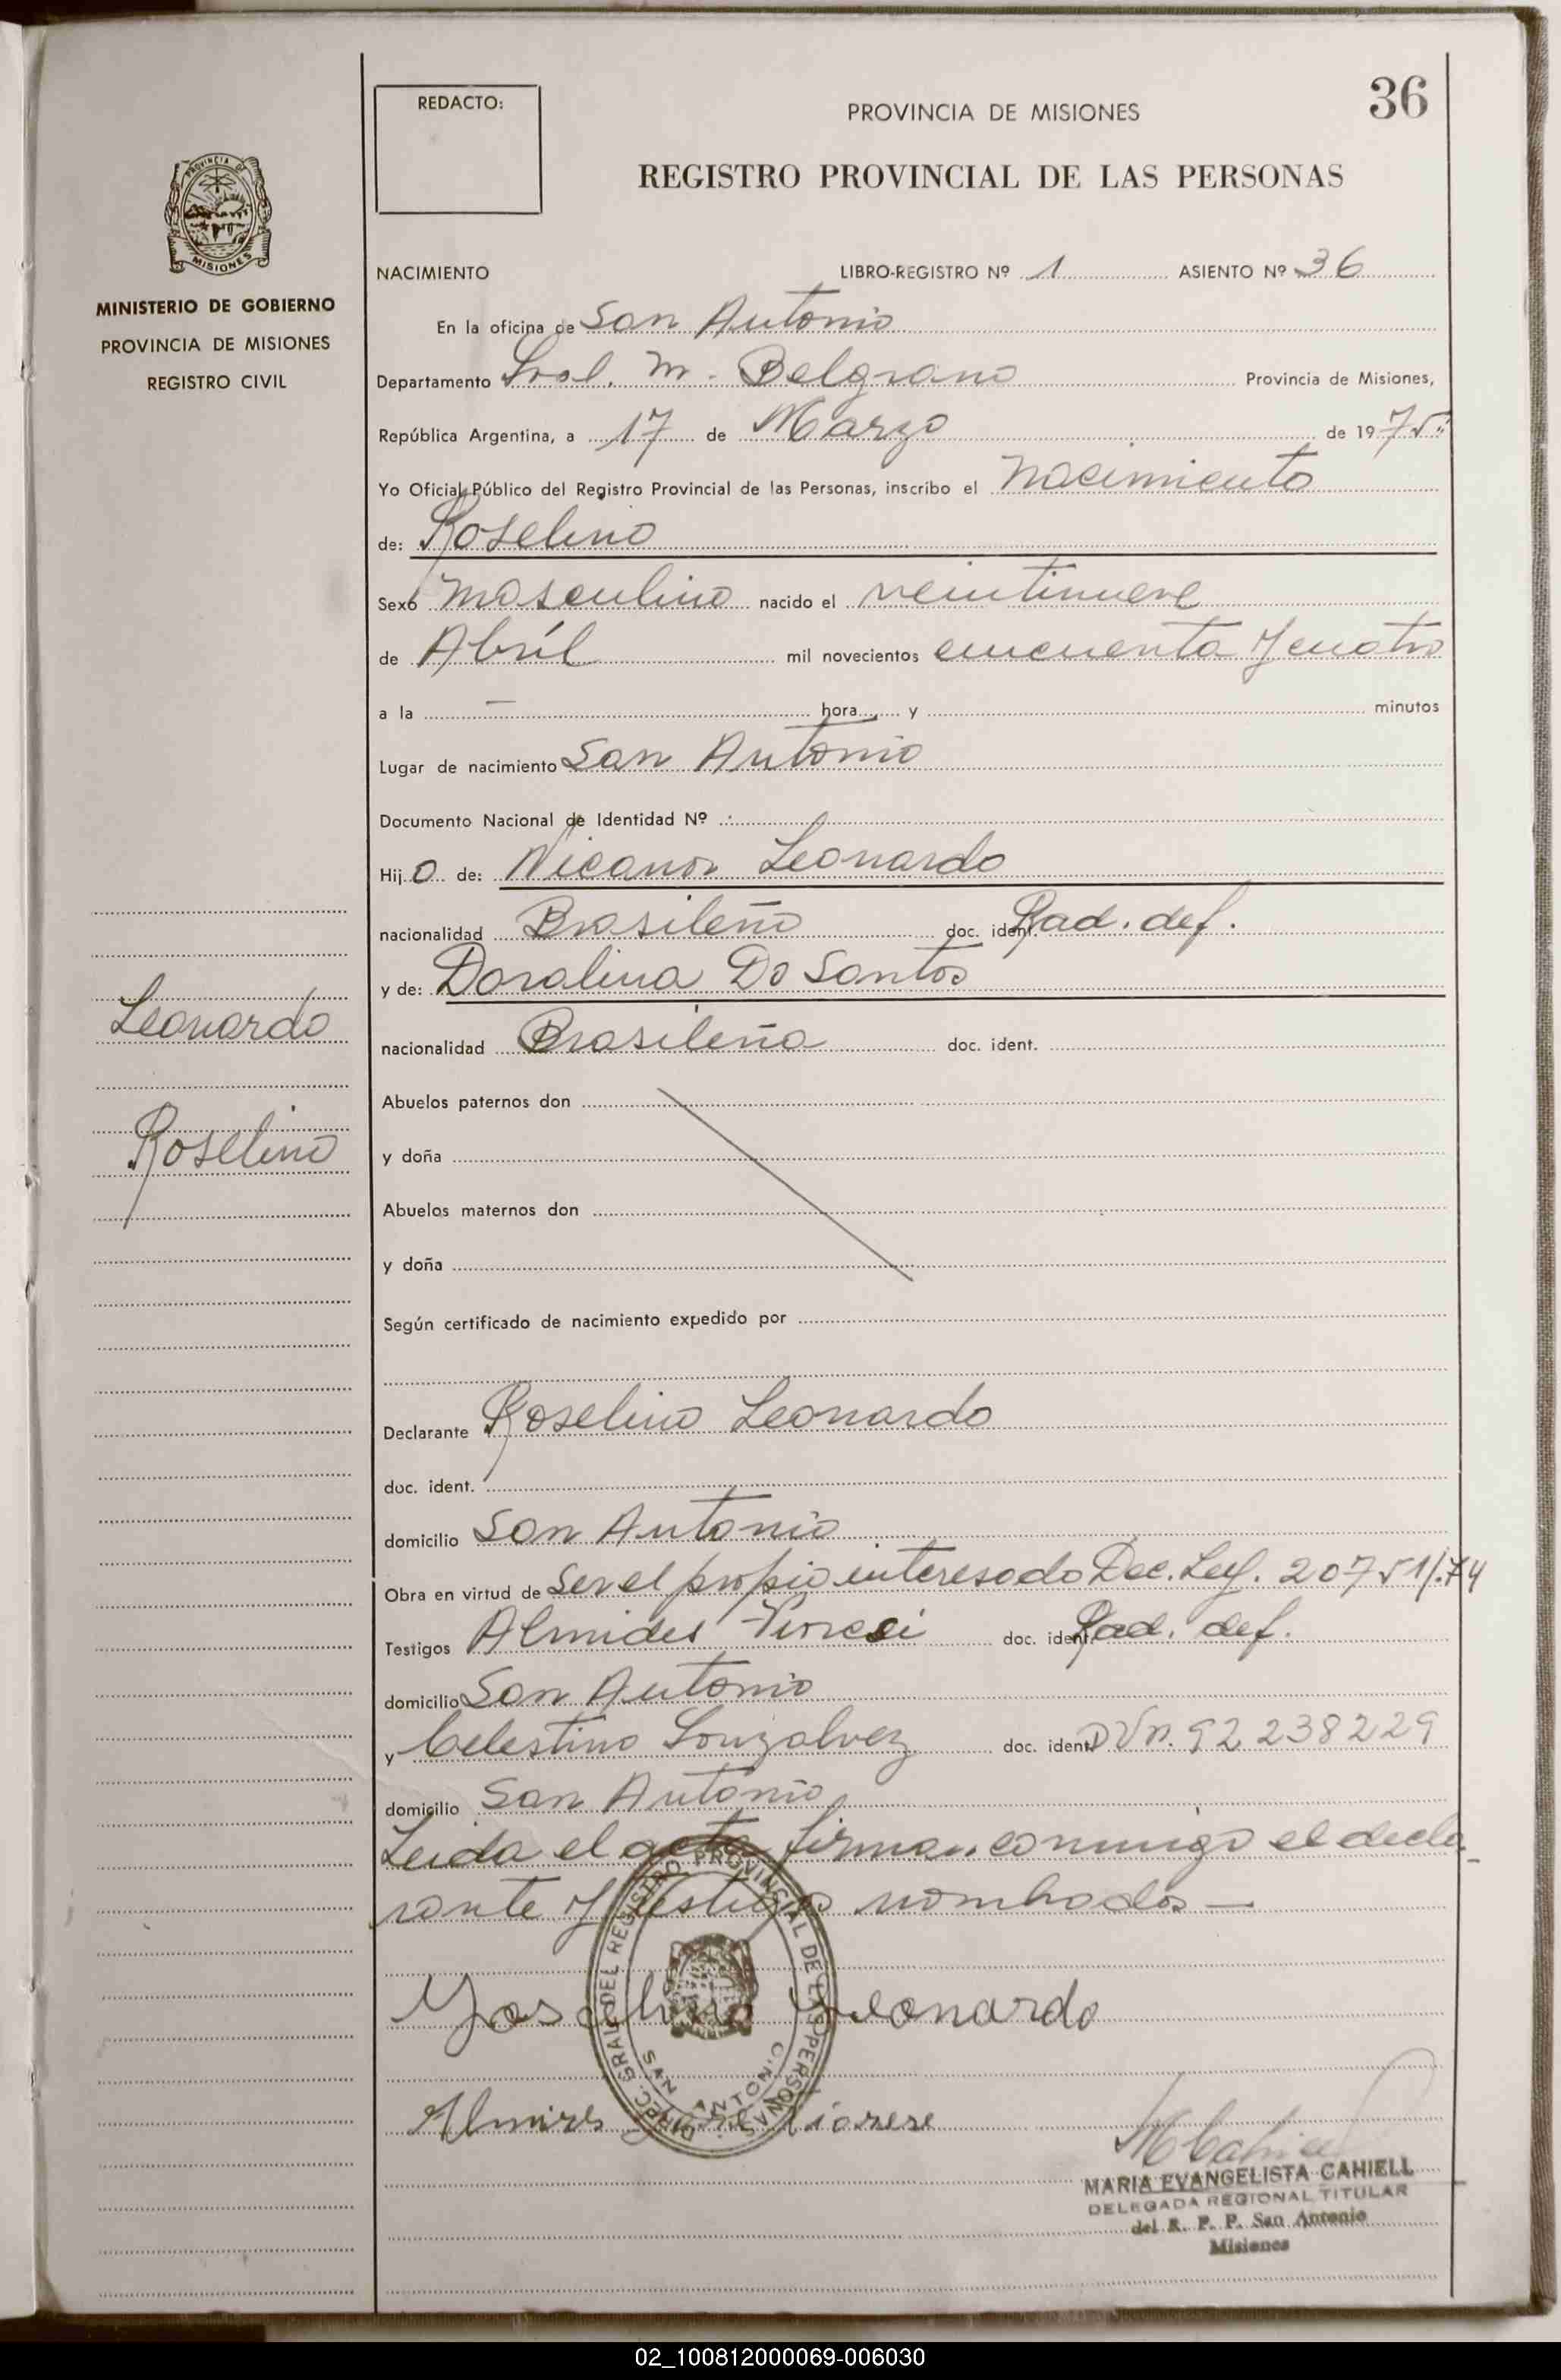 36
REDACTO:
PROVINCIA DE MISIONES
REGISTRO PROVINCIAL DE LAS PERSONAS
PROVINCIA DE
MISIONES
MINISTERIO DE GOBIERNO
PROVINCIA DE MISIONES
REGISTRO CIVIL
NACIMIENTO LIBRO-REGISTRO Nº 1 ASIENTO Nº 36
En la oficina de San Antonio
Departamento Gral. M. Belgrano Provincia de Misiones,
República Argentina, a 17 de Marzo de 1975
Yo Oficial Público del Registro Provincial de las Personas, inscribo el Nacimiento
de: Roselino
Sexo masculino nacido el veintinueve
de Abril mil novecientos cincuenta y cuatro
a la — hora y minutos
Lugar de nacimiento San Antonio
Documento Nacional de Identidad Nº
Hijo de: Nicanor Leonardo
nacionalidad Brasileño doc. ident. Rad. def.
y de: Doralina Do Santos
nacionalidad Brasileña doc. ident.
Leonardo
Roselino
Abuelos paternos don
y doña
Abuelos maternos don
y doña
Según certificado de nacimiento expedido por
Declarante Roselino Leonardo
doc. ident.
domicilio San Antonio
Obra en virtud de Ser el propio interesado Dec. Ley. 20751/.74
Testigos Almides doc. ident. Rad. def.
domicilio San Antonio
y Celestino Gonzalvez doc. ident. 92238229
domicilio San Antonio
Leida el acta firman conmigo el decla-
rante y testigos nombrados —
Leonardo
DIREC. GRAL. DEL REGISTRO PROVINCIAL DE LAS PERSONAS
SAN ANTONIO
MARIA EVANGELISTA CAHIELL
DELEGADA REGIONAL TITULAR
del R. P. P. San Antonio
Misiones
02_100812000069-006030